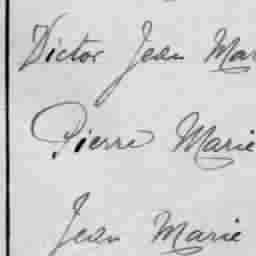 Victor Jean Mar
Pierre Marie
Jean Marie